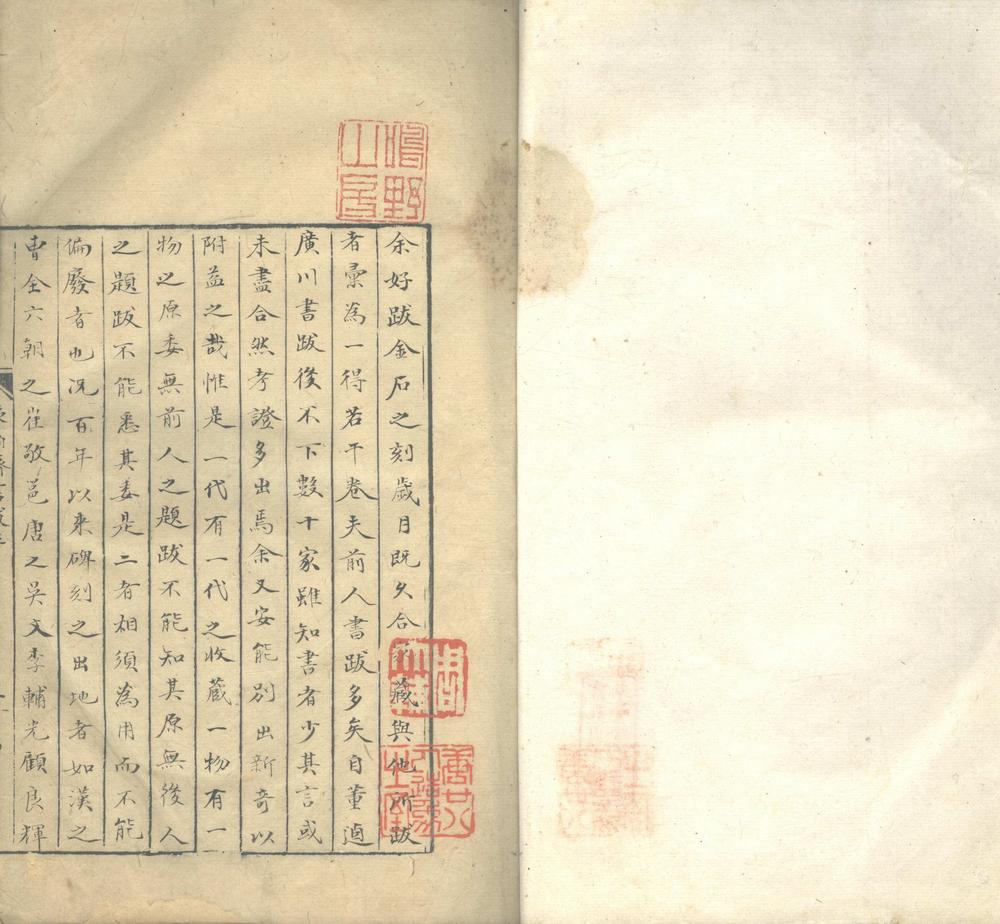 余好跋金石之刻歲月既久合家藏與他所跋
者彙為一得若干卷夫前人書跋多矣自董逌
廣川書跋後不下數十家雖知書者少其言或
未盡合然考證多出焉余又安能別出新奇以
附益之哉惟是一代有一代之收藏一物有一
物之原委無前人之題跋不能知其原無後人
之題跋不能悉其委是二者相須為用而不能
偏廢者也況百年以來碑刻之出地者如漢之
曹全六朝之崔敬邕唐之吳文李輔光顧良輝
山居
野